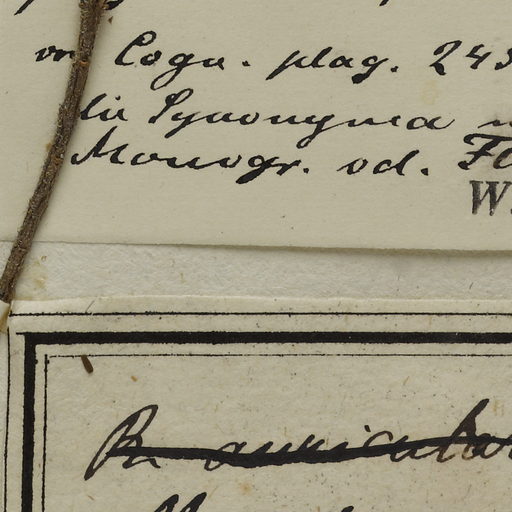 von Cogn. plag. 243
die Synonyma
Monogr. od. Fl
W.
Ps. auricular